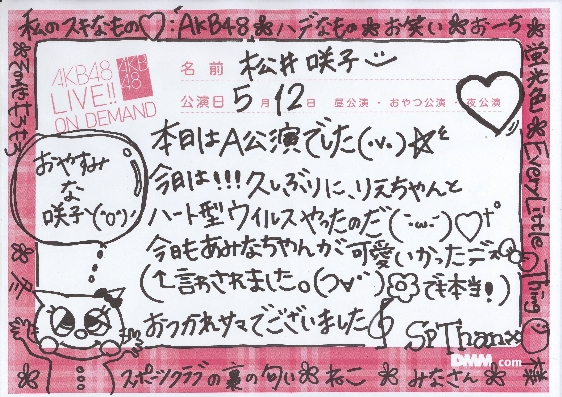 私のスキなもの♡:AKB48 ❀ ハデなもの ❀ お笑い ❀ おーち
❀ 蛍光色 ❀ Every Little Thing 様
❀ その他もろもろ
AKB48
LIVE!!
ON DEMAND
AKB
48
名前 松井咲子
公演日 5月12日 昼公演・おやつ公演・夜公演
本日はA公演でした
今日は!!!久しぶりに、りえちゃんと
ハート型ウイルスやったのだ(-ω-)♡
今日もあみなちゃんが可愛いかったデス
(↑言わされました。 でも本当!)
おつかれサマでございました
Sp Thanx
おやすみ
な
咲子
冬
❀ スポーツクラブの裏の匂い ❀ ねこ ❀ みなさん ❀
DMM.com